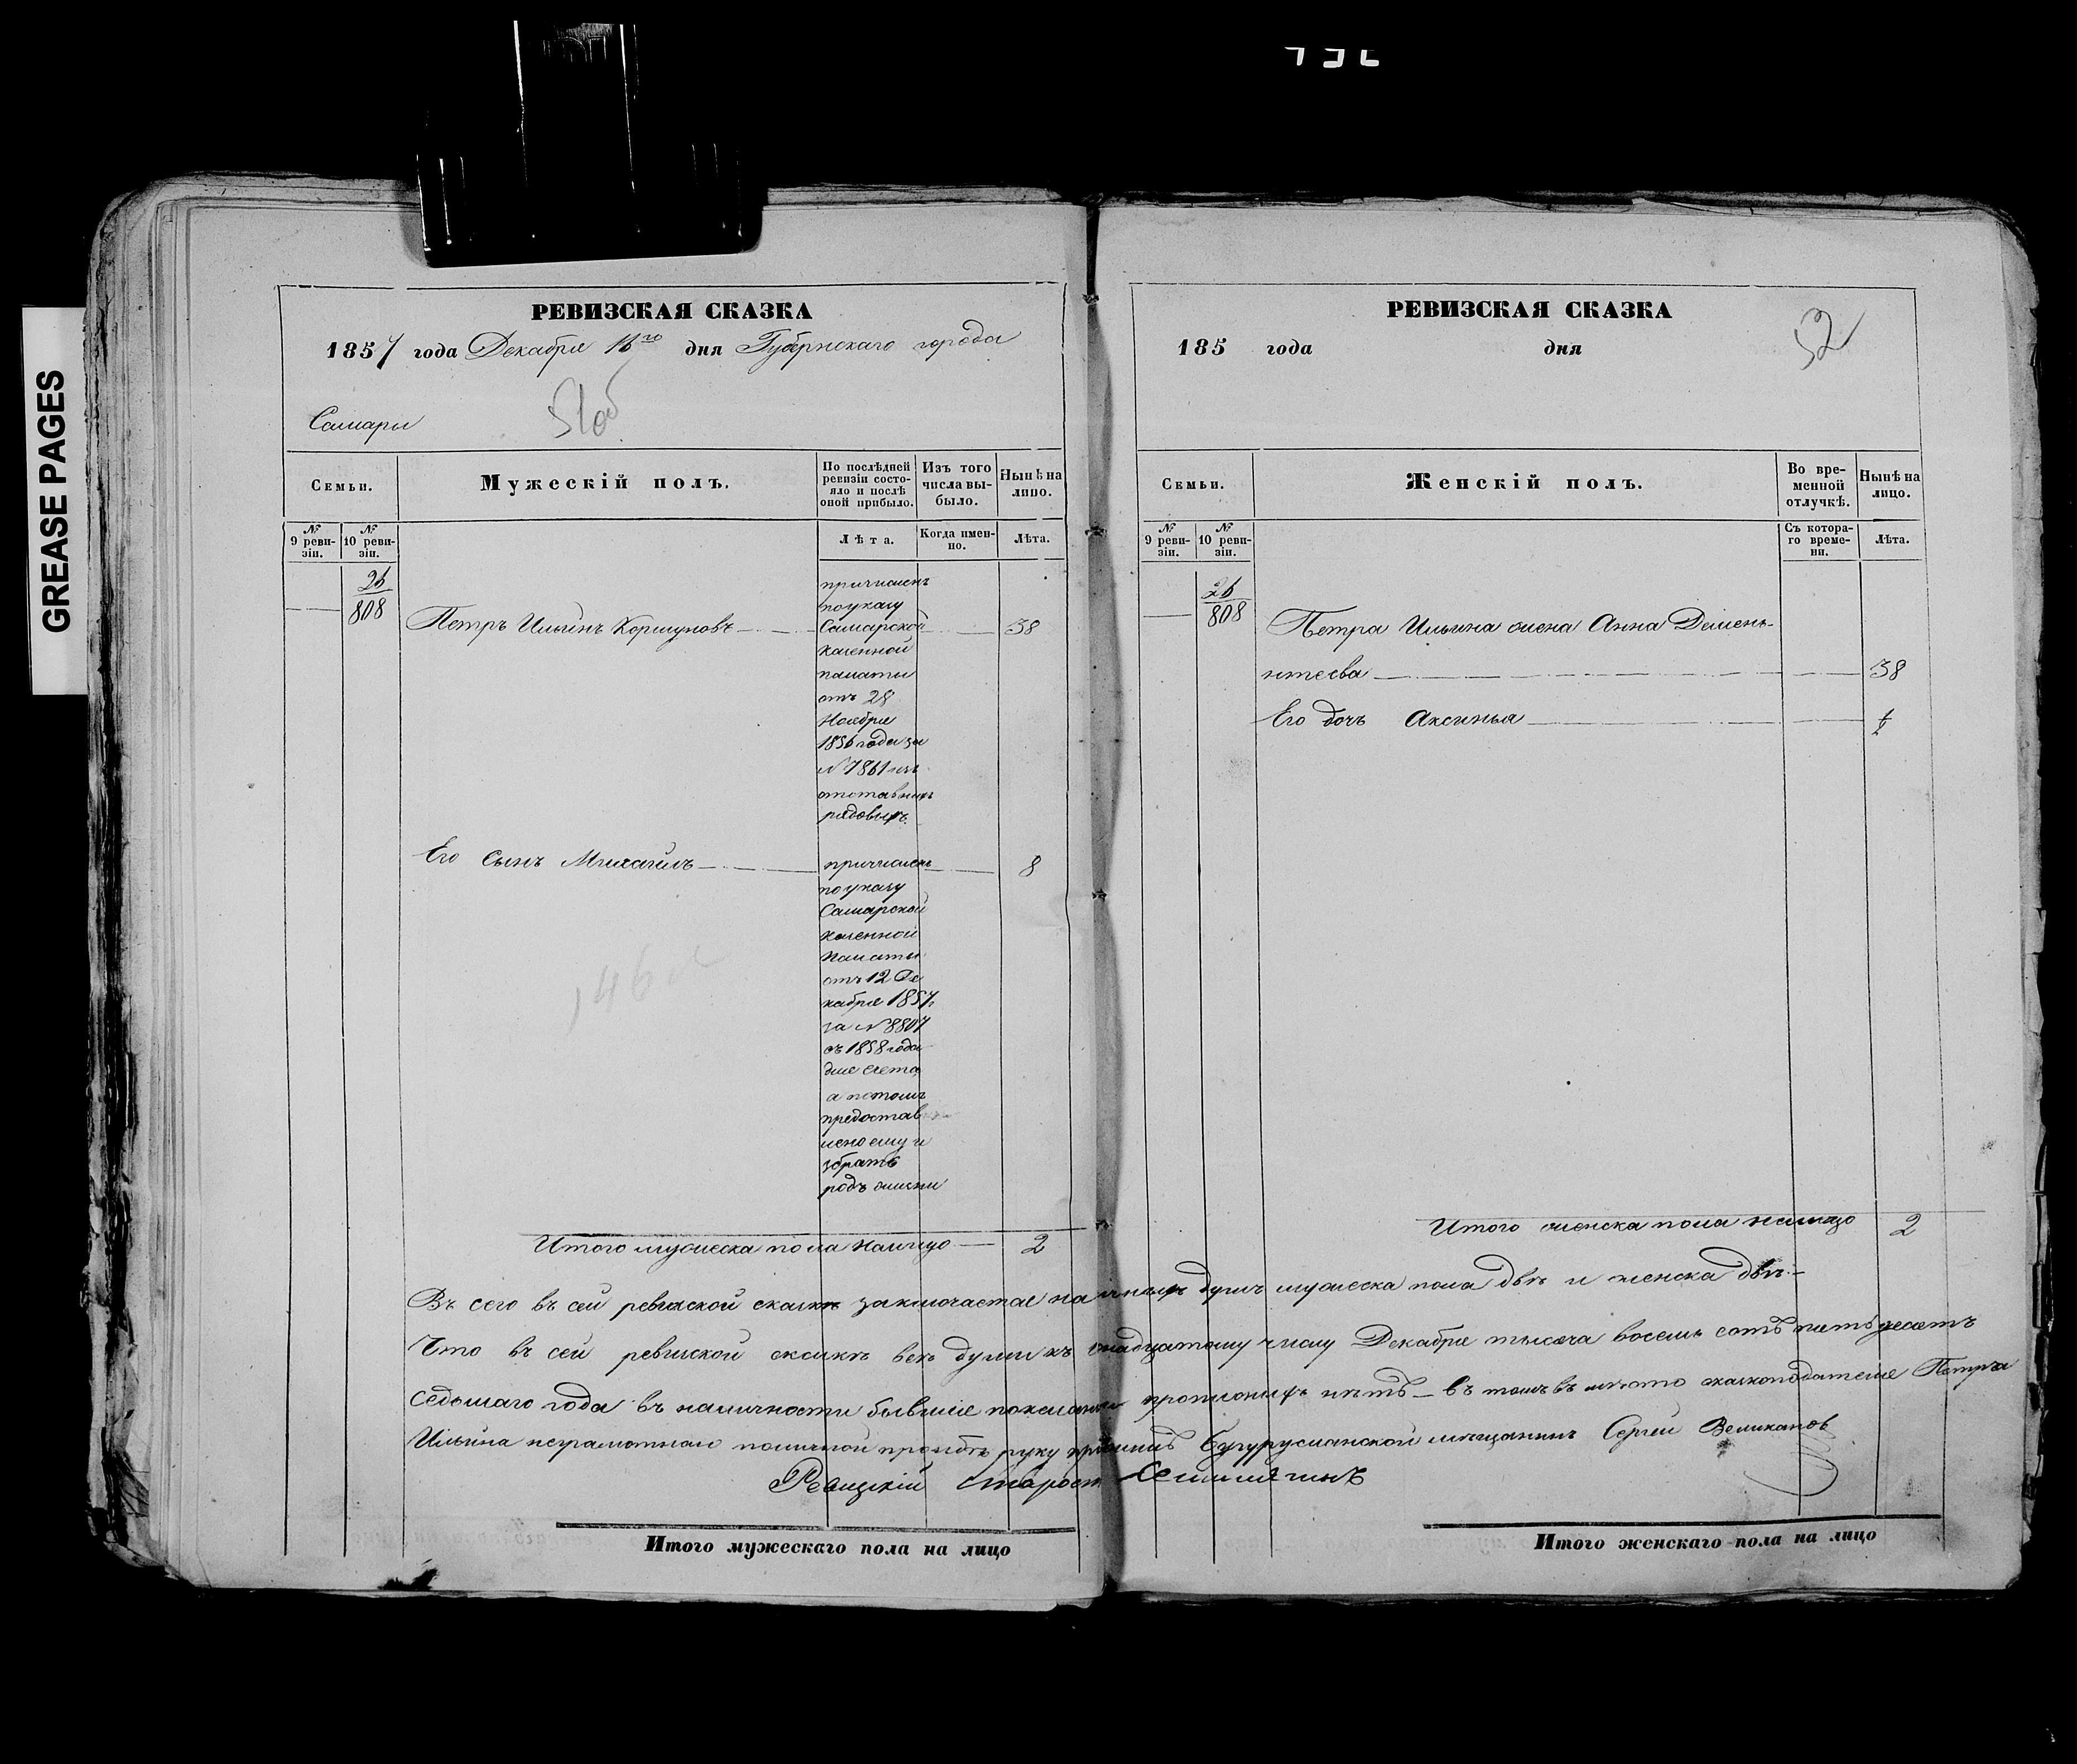 GREASE PAGES
РЕВИЗСКАЯ СКАЗКА
1857 года Декабря 16го дня Губернскаго города
Самары
51об
Семьи.
Мужескій полъ.
По послѣдней ревизіи состояло и послѣ оной прибыло.
Изъ того числа выбыло.
Нынѣ на лицо.
№ 9 ревизіи.
№ 10 ревизіи.
Лѣта.
Когда именно.
Лѣта.
26
808
Петръ Ильинъ Коршуновъ
38
причисленъ
по указу
Самарской
казенной
палаты
отъ 28
Ноября
1856 года за
№ 7861 изъ
отставныхъ
рядовыхъ
Его сынъ Михайлъ
8
причисленъ
по указу
Самарской
казенной
Палаты
отъ 12 Де
кабря 1857г
за № 8807
съ 1858 года
для счета,
а потомъ
предостав
лено ему и
збрать
родъ жизни
Итого мужеска пола налицо 2
РЕВИЗСКАЯ СКАЗКА
185 года дня
52
Семьи.
Женскій полъ.
Во временной отлучкѣ.
Нынѣ на лицо.
№ 9 ревизіи.
№ 10 ревизіи.
Съ котораго времени.
Лѣта.
26
808
Петра Ильина жена Анна Демень-
нтьева 38
Его дочь Аксинья
Итого женска пола налицо 2
Въ сего въ сей ревизской сказкѣ заключается наличныхъ душъ мужеска пола двѣ и женска двѣ.
Что въ сей ревизской сказкѣ всѣ души къ надцатому числу Декабря тысяча восемь сотъ пятьдесятъ
седьмаго года въ наличности бывшія показаны прописныхъ нѣтъ – въ томъ въ мѣсто сказкоподателя Петра
Ильина неграмотнаго по личной прозьбѣ руку приложилъ Бугурусланской мѣщанинъ Сергей Великанов
Ревизскій Старост
Итого мужескаго пола на лицо
Итого женскаго пола на лицо